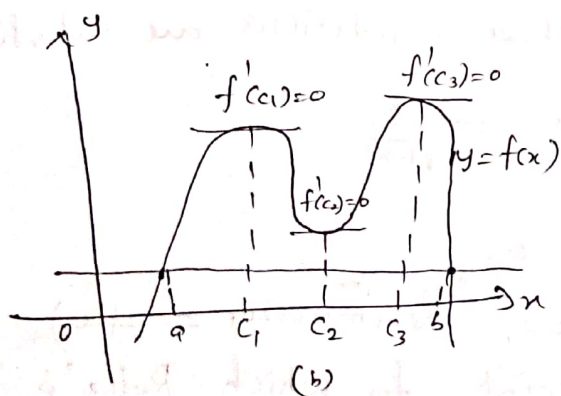 y
f'(c₁)=0
f'(c₃)=0
f'(c₂)=0
y=f(x)
0 a C₁ C₂ C₃ b x
(b)